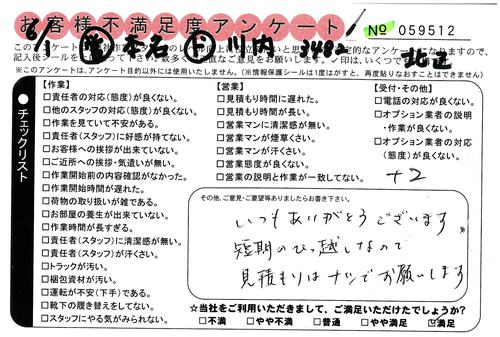 お客様不満足度アンケート
No 059512
6/1 本名 ド 川内 3482 北区
このアンケートは
※このアンケートは、アンケート目的以外には使用いたしません。(※情報保護シールは1度はがすと、再度貼りなおすことはできません)
チェックリスト
【作業】
□責任者の対応(態度)が良くない。
□他のスタッフの対応(態度)が良くない。
□作業を見ていて不安がある。
□責任者(スタッフ)に好感が持てない。
□お客様への挨拶が出来ていない。
□ご近所への挨拶・気遣いが無い。
□作業開始前の内容確認がなかった。
□作業開始時間が遅れた。
□荷物の取り扱いが雑である。
□お部屋の養生が出来ていない。
□作業時間が長すぎる。
□責任者(スタッフ)に清潔感が無い。
□責任者(スタッフ)が汗くさい。
□トラックが汚い。
□梱包資材が汚い。
□運転が不安(下手)である。
□靴下の履き替えをしてない。
□スタッフにやる気がみられない。
【営業】
□見積もり時間に遅れた。
□見積もり時間が長い。
□営業マンに清潔感が無い。
□営業マンが煙草くさい。
□営業マンが汗くさい。
□営業態度が良くない。
□営業の説明と作業が一致してない。
【受付・その他】
□電話の対応が良くない。
□オプション業者の説明・作業が良くない。
□オプション業者の対応(態度)が良くない。
+2
その他、ご意見・ご要望等ありましたらお書き下さい。
いつもありがとうございます
短期のひっ越しなので
見積もりはナシでお願いします
☆当社をご利用いただきまして、ご満足いただけたでしょうか?
□不満 □やや不満 □普通 □やや満足 ☑満足